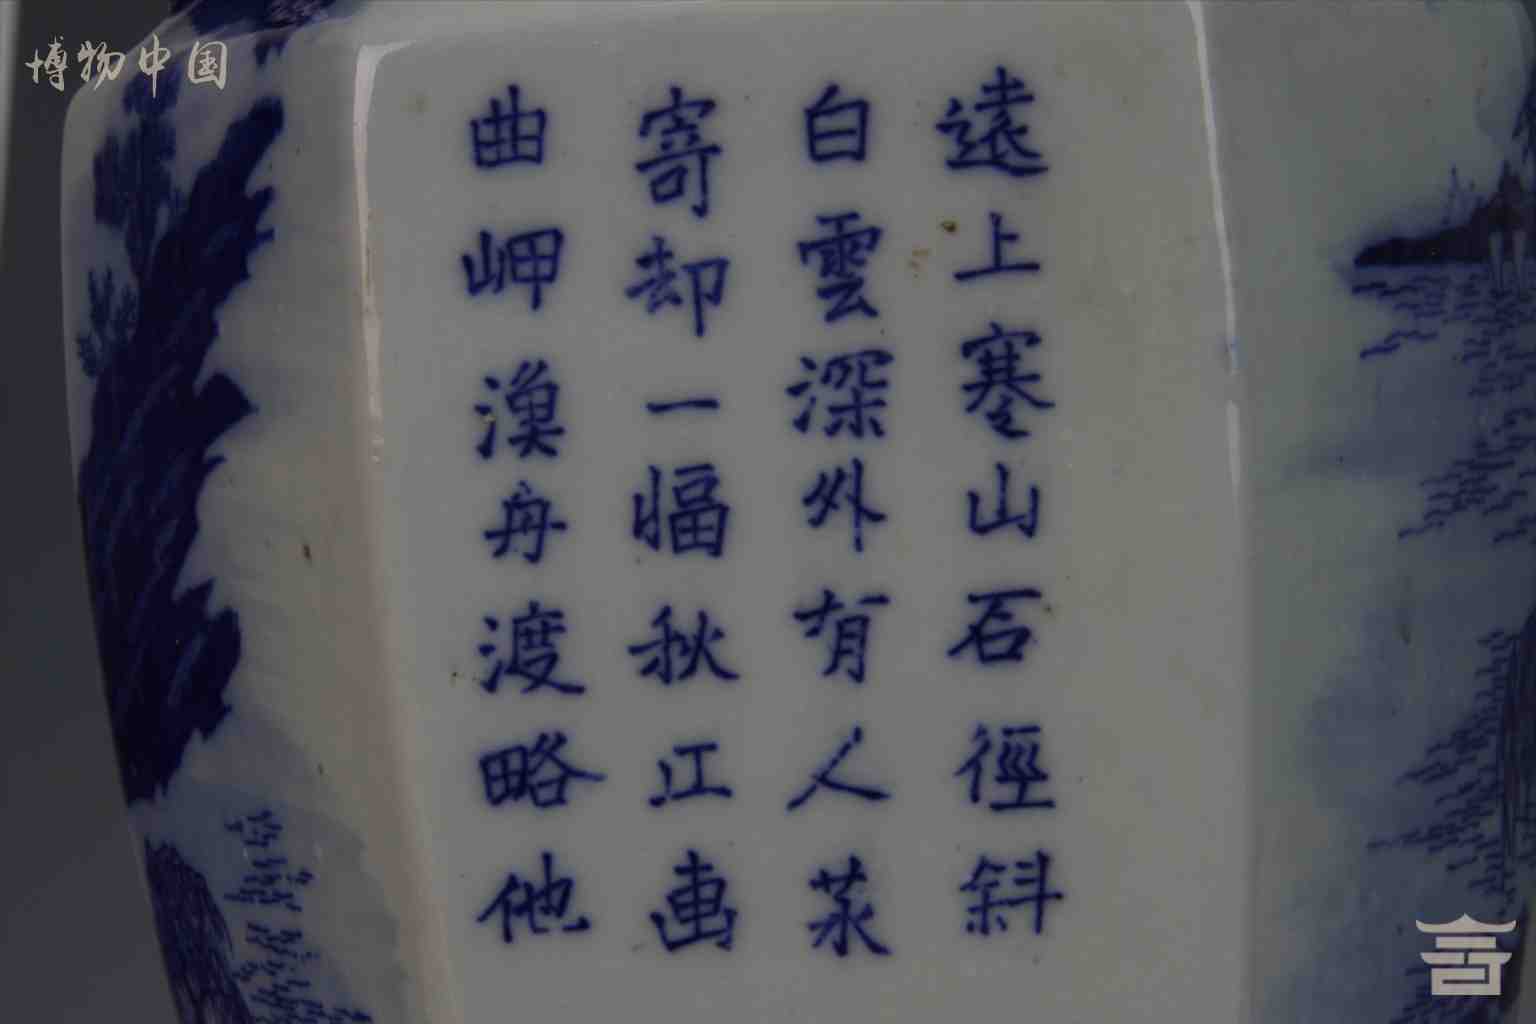 博物中国
遠上寒山石徑斜
白雲深外有人家
寄却一幅秋江画
曲岬漁舟渡略他